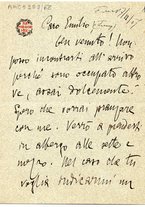 Caro Emilio
ben venuto! Non
posso incontrarti all'arrivo
perché sono occupato altro-
ve, assai dolcemente.
Spero che vorrai pranzare
con me. Verrò a prenderti
in albergo alle sette e
mezzo. Nel caso che tu
voglia indicarmi un